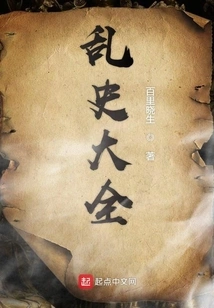 乱史大全
百里晓生
著
起点中文网